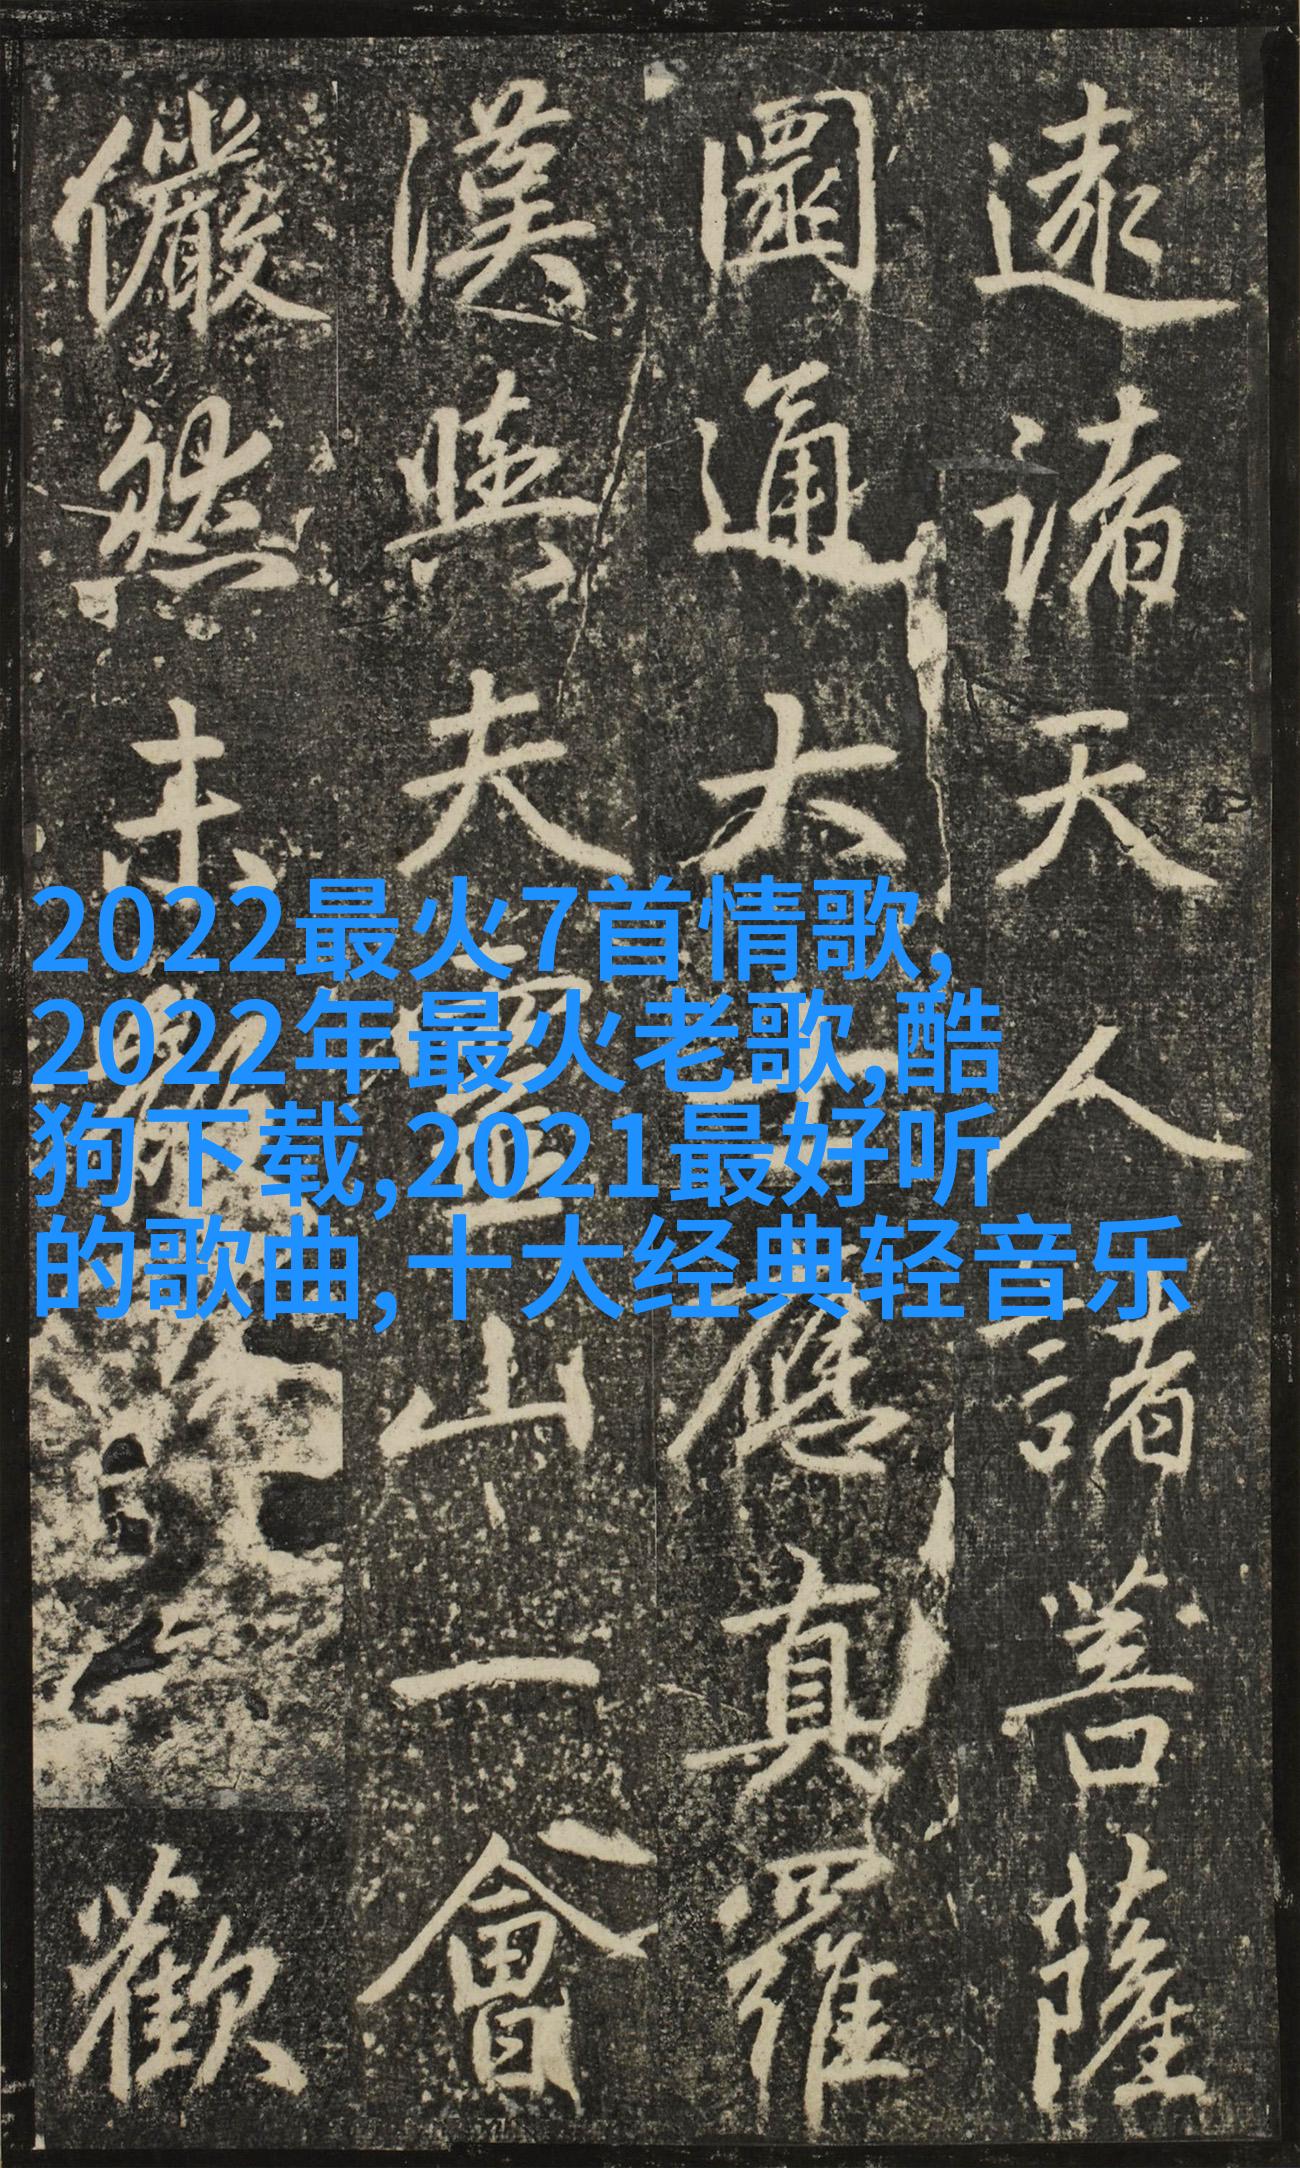 遠諸天人諸菩薩
圓通大士應真羅
漢與夫靈山一會
儼然未歡
2022最火7首情歌,
2022年最火老歌,酷
狗下载,2021最好听
的歌曲,十大经典轻音乐